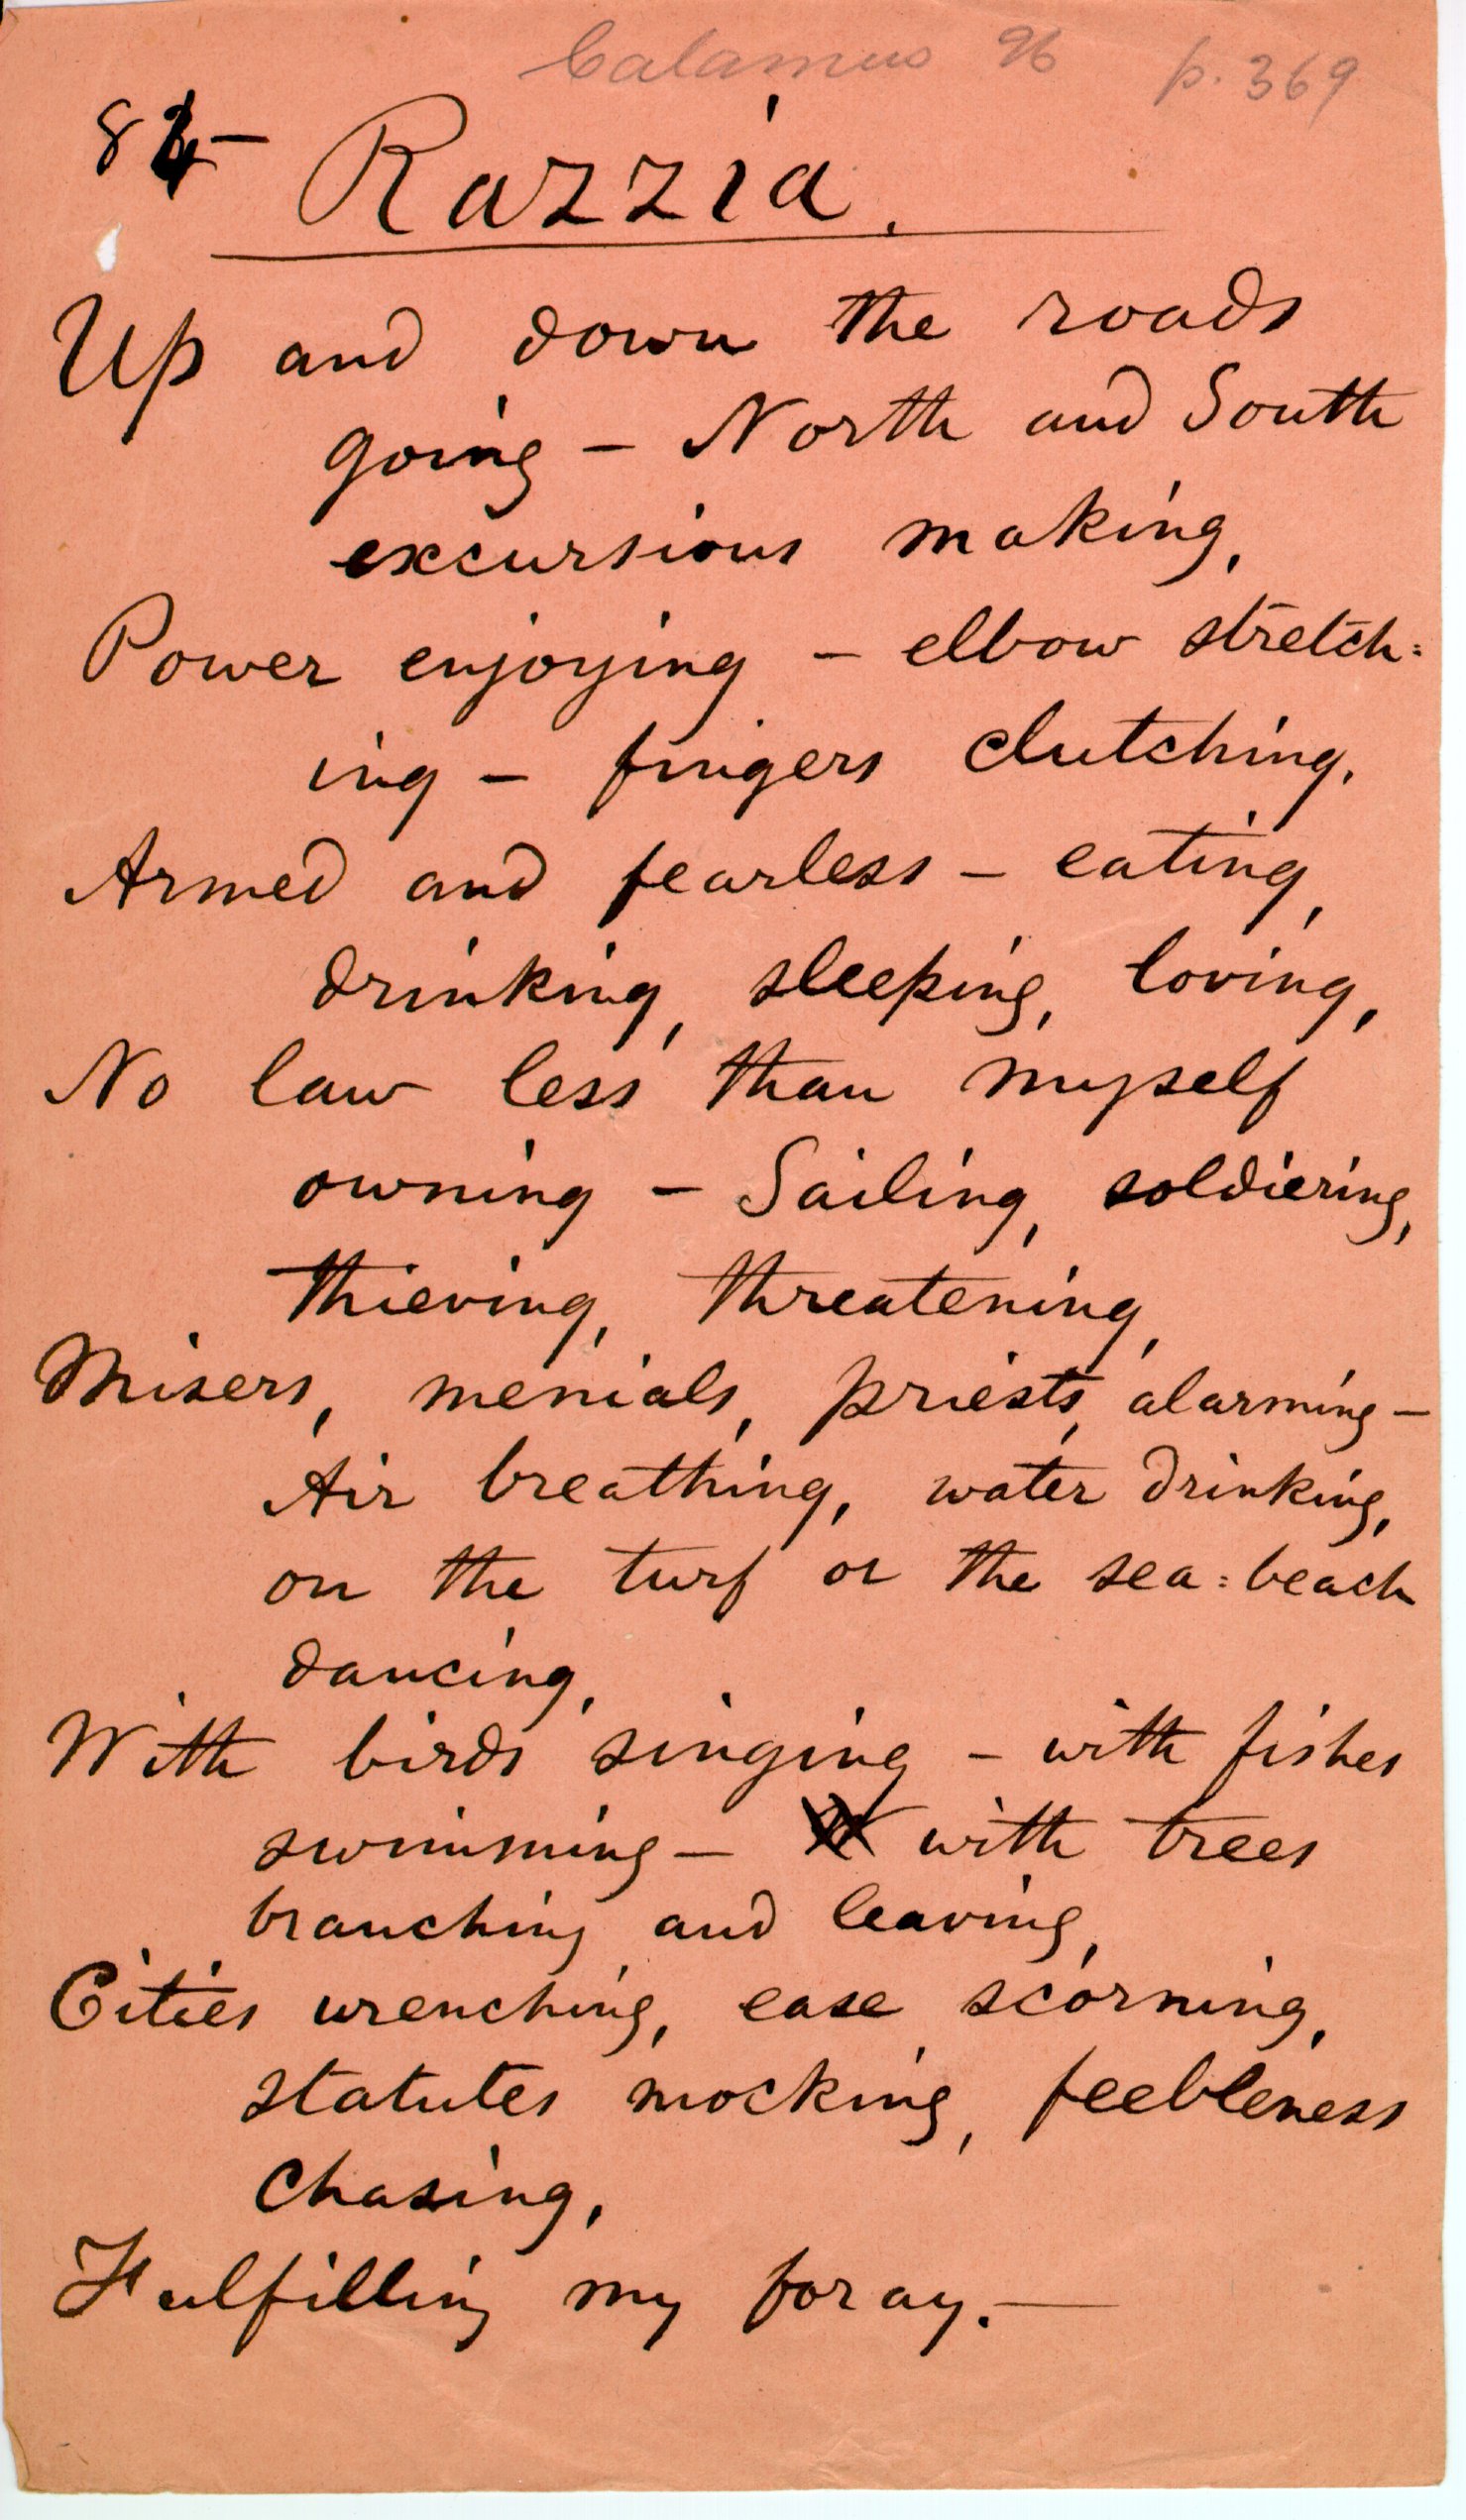 Calamus 26 p. 369
8
Razzia.
Up and down the roads
going – North and South
excursions making,
Power enjoying – elbow stretch=
ing – fingers clutching,
Armed and fearless – eating,
drinking, sleeping, loving,
No law less than myself
owning – Sailing, soldiering,
thieving, threatening,
Misers, menials, priests, alarming –
Air breathing, water drinking,
on the turf or the sea=beach
dancing,
With birds singing – with fishes
swimming – with trees
branching and leaving,
Cities wrenching, ease scorning,
statutes mocking, feebleness
chasing,
Fulfilling my foray.—